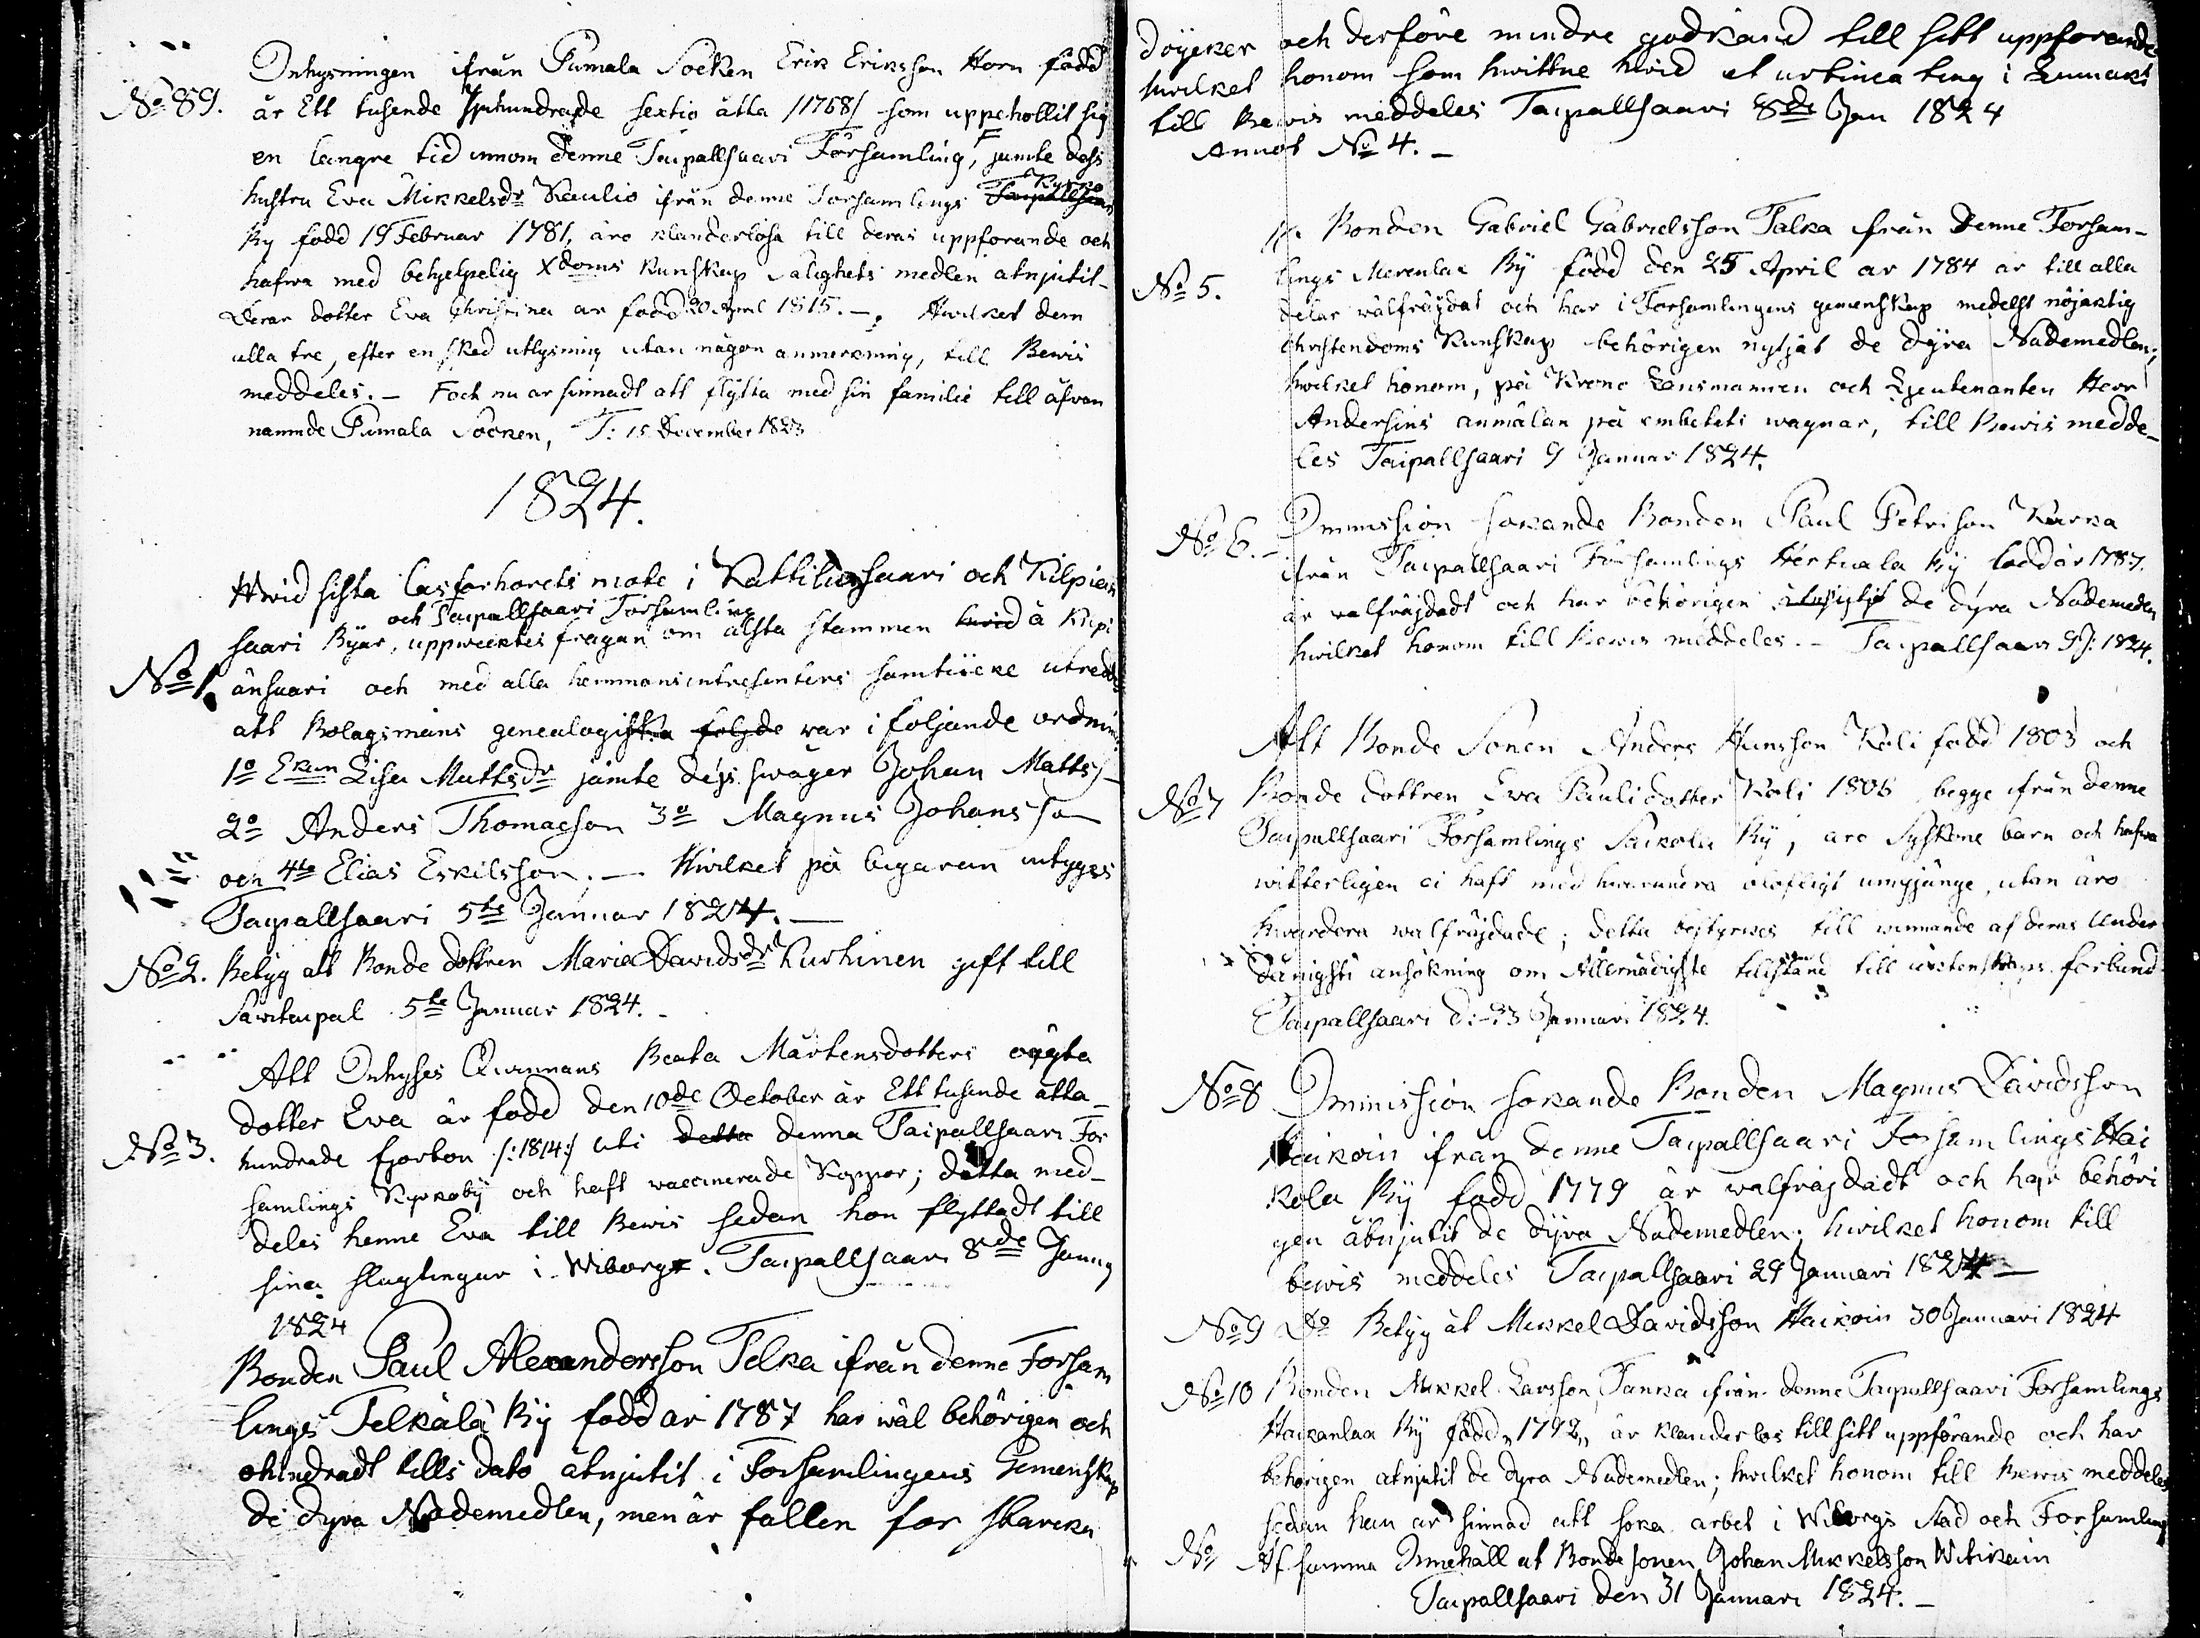 Inhysningen ifrån Pumala Socken Erik Eriksson Horn född
No 89. år Ett tusende Sjuhundrade sextio åtta /1768/ som uppehollit sig
en längre tid innom denne Taipallsaari Församling, F jämte dess
hustru Eva Mikkelsdr Kaulio ifrån denne Församlings Kyrko
By född 19 Februar 1781, äro klanderlösa till deras uppförande och
hafva med behjelpelig Xdoms Kunskap Salighets medlen åtnjutit.
Deras dotter Eva Christina är född 20 April 1815. —. Hwilket dem
alla tre, efter en sked utlysning utan någon anmerkning, till Bewis
meddeles. — F och nu är sinnadt att flytta med sin familie till åfvan
nämnde Pumala Socken, T: 15 December 1823
1824.
Hwid sista läsförhörets möte i Kattilansaari och Kilpiän
och Taipallsaari Församling
saari Byar, uppwecktes frågan om älsta stammen hwid å Kirpi
No 1. änsaari och med alla hemmansintresenters samtücke utredd
att Bolagsmäns genealogiska följde var i följande ordning
1o Ekan Lisa Mattsdr jämte dess swåger Johan Mattss
2o Anders Thomasson 3o Magnus Johansson
och 4to Elias Eskilsson. — Hwilket på begäran intygas
Taipallsaari 5te Januar 1824. —
No 2. Betyg att Bonde dottren Maria Davidsdr Hurhinen gift till
Savitaipal 5te Januar 1824. -
Att Inhyses Qwinnans Beata Mårtensdotters oägta
dotter Eva är född den 10de October år Ett tusende åtta_
No 3. hundrade fjorton /:1814:/ uti detta denna Taipallsaari För
samlings Kyrkoby och haft vaccinerade Koppor; detta med_
deles henne Eva till Bewis sedan hon flyttadt till
sina slägtingar i Wiborg. Taipallsaari 8de Janua
1824
Bonden Paul Alexandersson Telka ifrån denne Försam
lings Telkälä By född år 1787 har wäl behörigen och
ohindradt tills dato åtnjutit i Församlingens Gemenskap
de dyra Nådemedlen, men är fallen för starcka
döycker och derföre mindre godkänd till sitt uppförande
hwilket honom som hwittne hwid et urtima ting i Lumäki
till Bewis meddeles Taipallsaari 8de Jan 1824
Annot No 4. —
Bonden Gabriel Gabrielsson Talka från denne Försam-
No 5. lings Merenlax By född den 25 April år 1784 är till alla
delar wälfräjdat och har i Församlingens gemenskap medelst nöjaktig
Christendoms Kunskap behörigen nytjat de dyra Nådemedlen;
hwilket honom, på Krono Länsmannen och Lieutenanten Herr
Andersins anmälan på embetets wägnar, till Bewis medde_
les Taipallsaari 9 Januar 1824.
No 6. - Ommission sökande Bonden Paul Petrison Kurka
ifrån Taipallsaari Församlings Hertuala By född år 1787.
är välfräjdadt och har behörigen de dyra Nådemedlen
hwilket honom till Bewis meddeles. - Taipallsaari 9 J: 1824.
Att Bonde Sonen Anders Hansson Kåli född 1803 och
No 7 Bonde dottren Eva Paulidotter Kåli 1806 begge ifrån denne
Taipallsaari Församlings Saikola By, äro Syskone barn och hafva
witterligen ei haft med hwarandra olofligt umgänge, utan äro
hwardera walfräjdade; detta bestyrkes till winnande af deras Under
dånigste ansökning om Allernådigste tillstånd till äcktenskaps förbund
Taipallsaari d: 23 Januari 1824.
No 8 Ommission sökande Bonden Magnus Davidsson
Haikoin ifrån denne Taipallsaari Församlings Hai
kola By född 1779 är walfräjdadt och har behöri
gen åtnjutit de dyra Nådemedlen; hwilket honom till
bewis meddeles Taipallsaari 29 Januari 1824 —
No 9 Do Betyg åt Mikkel Davidsson Haikoin 30 Januari 1824
No 10 Bonden Mikkel Larsson Janka ifrån denne Taipallsaari Församlings
Haikanlax By född "1792" är klanderlös till sitt uppförande och har
behörigen åtnjutit de dyra Nådemedlen; hwilket honom till Bewis meddeles
sedan han är sinnad att söka arbet i Wiborgs stad och Församling
No Af samma Innehåll åt Bonde sonen Johan Mikkelsson Witikain
Taipallsaari den 31 Januari 1824. —